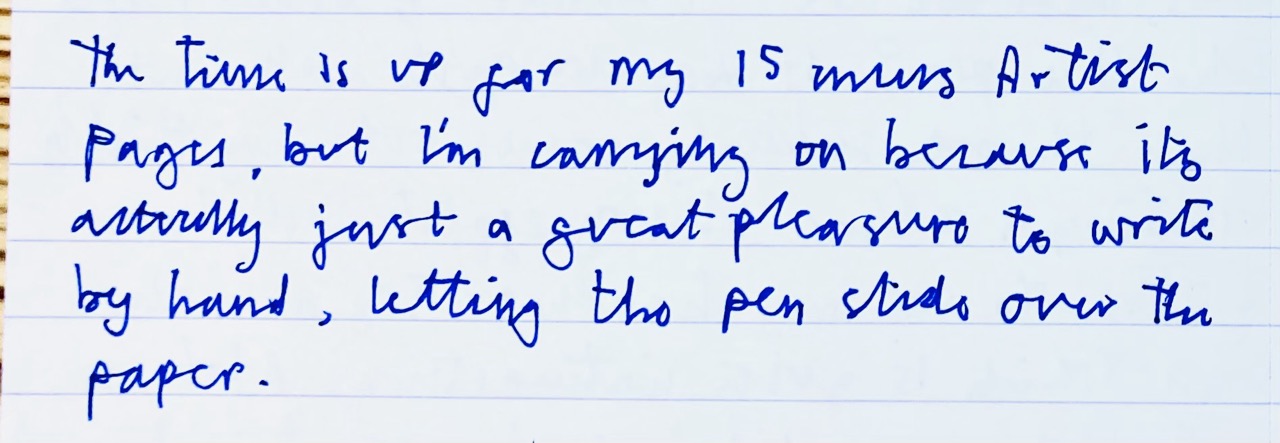 The time is up for my 15 mins Artist
Pages, but I'm carrying on because its
actually just a great pleasure to write
by hand, letting the pen slide over the
paper.